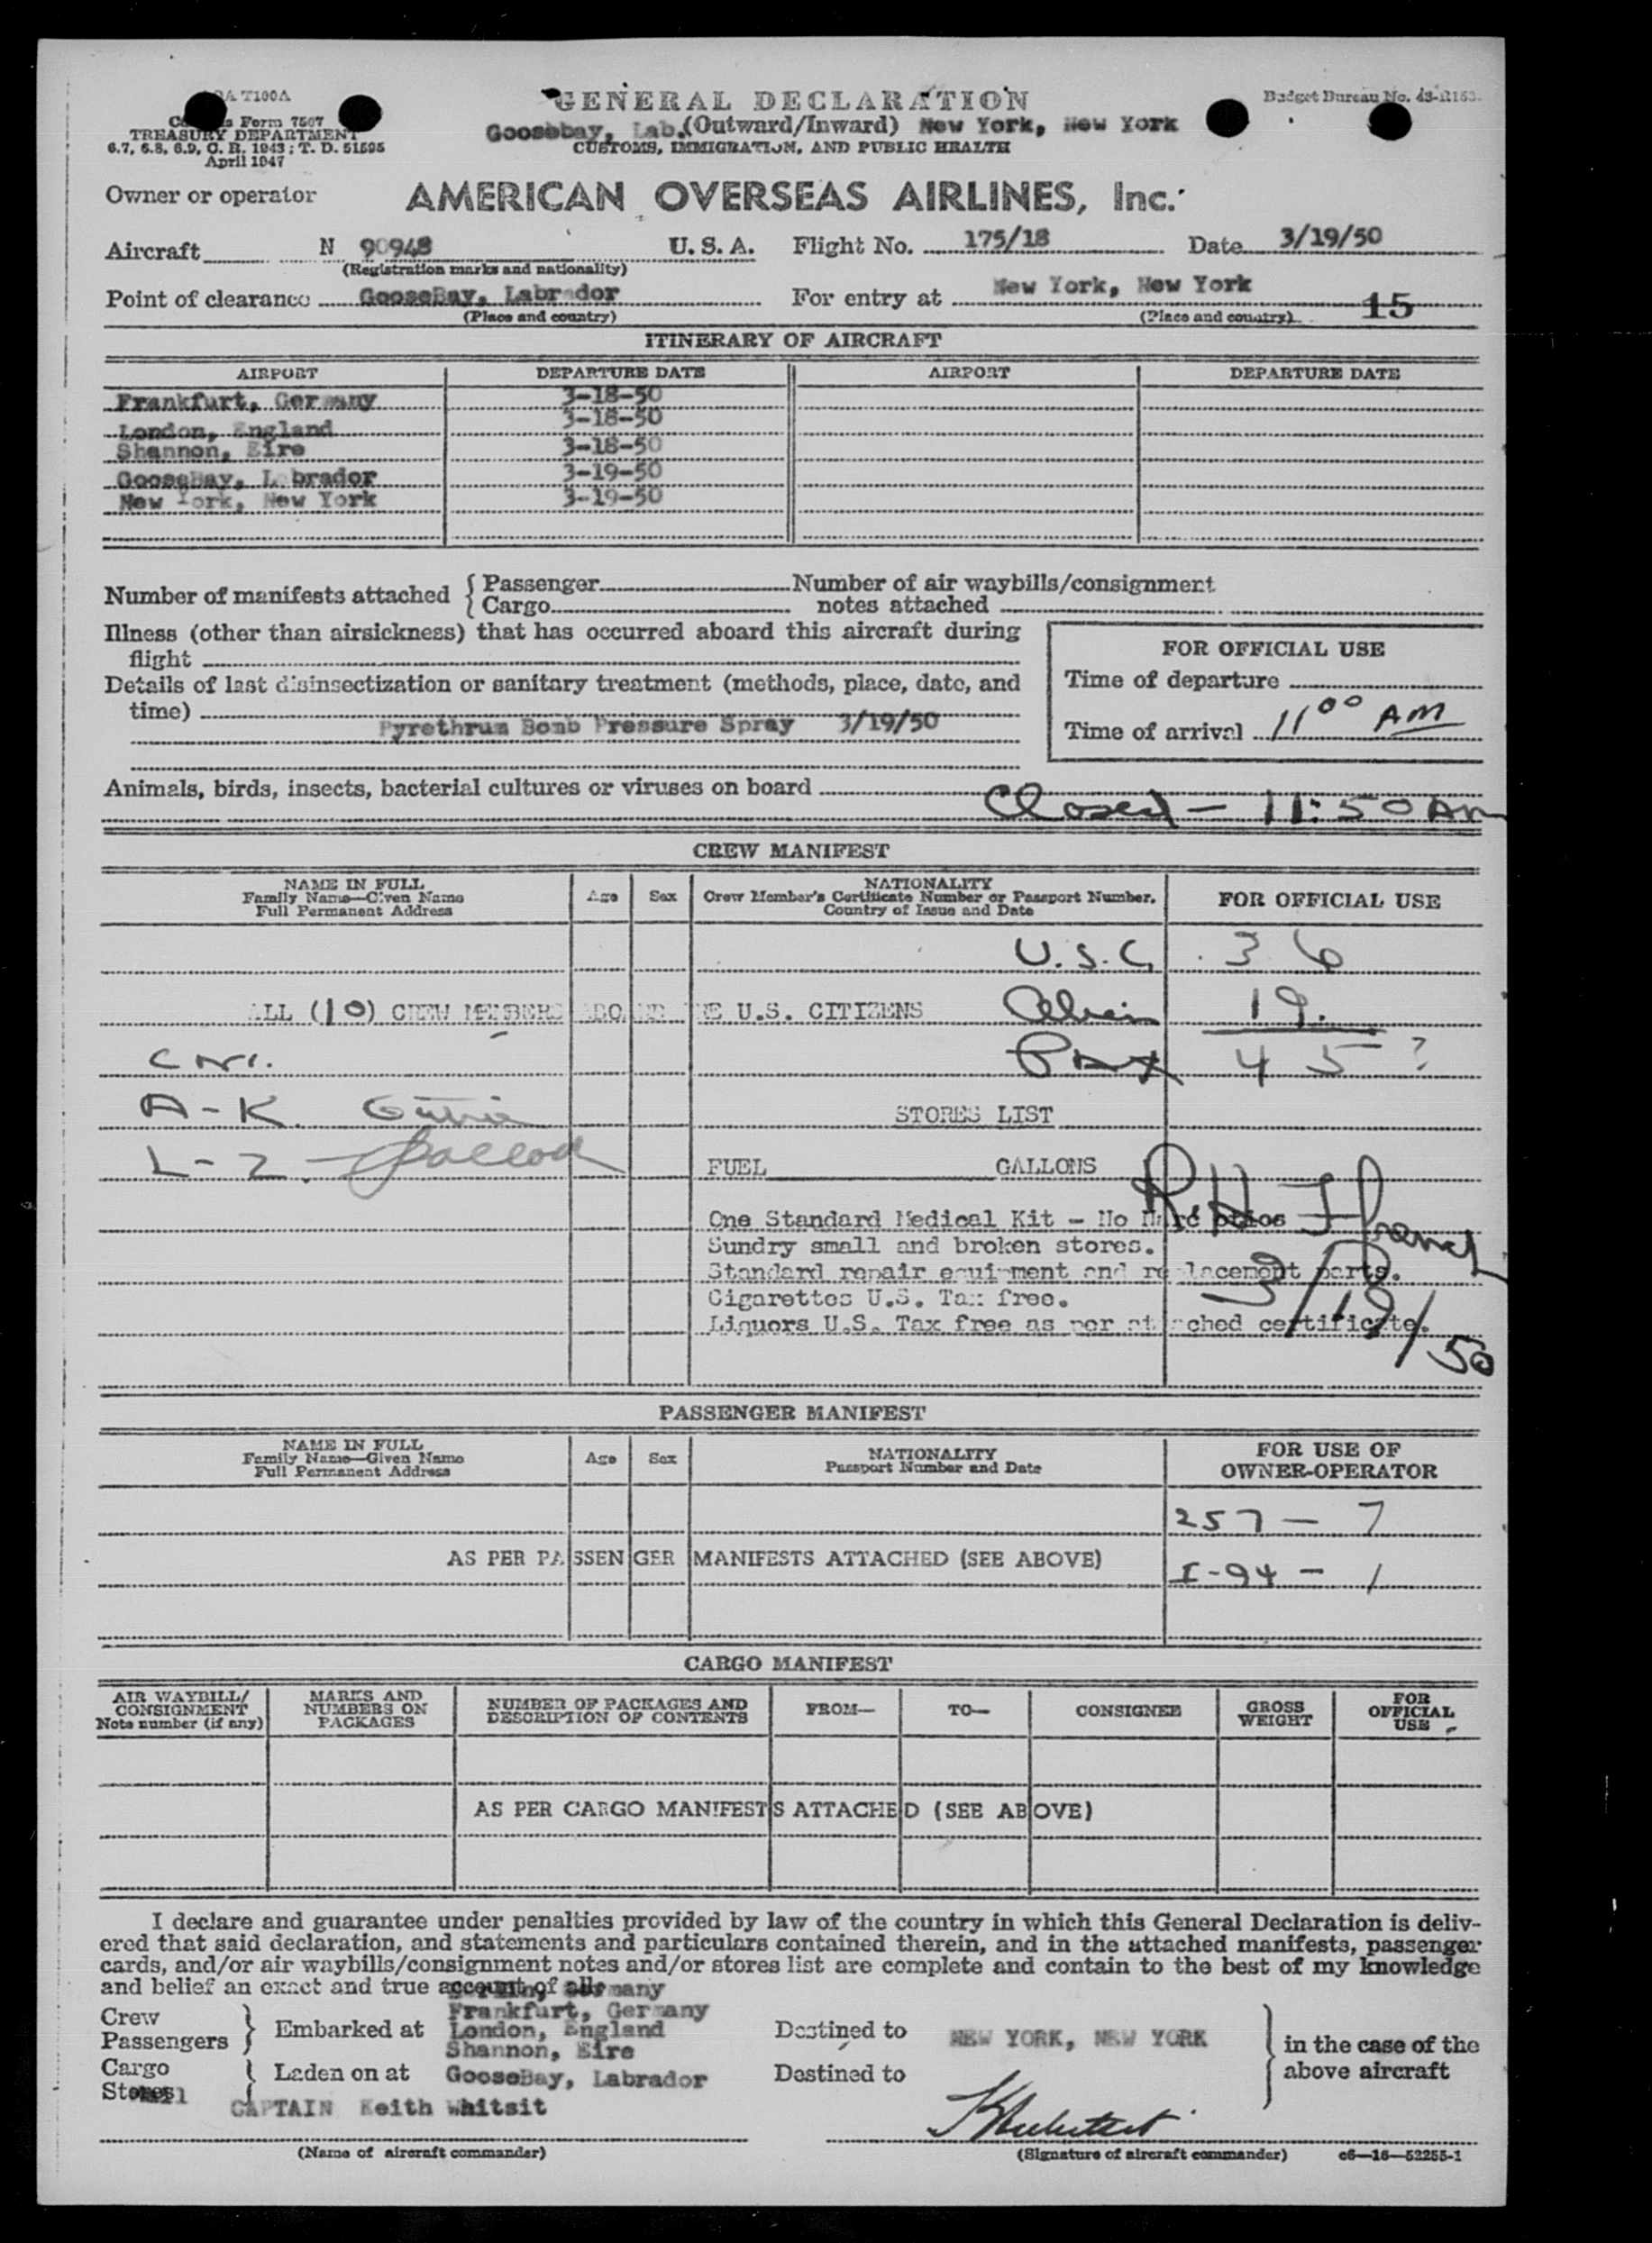 GENERAL DECLARATION
Goosebay, Lab. (Outward/Inward) New York, New York
CUSTOMS, IMMIGRATION, AND PUBLIC HEALTH
T100A
Form 7507
TREASURY DEPARTMENT
6.7, 6.8, 6.9, C. R. 1943; T. D. 51595
April 1947
Budget Bureau No.
Owner or operator AMERICAN OVERSEAS AIRLINES, Inc.
Aircraft N 90948 U. S. A. Flight No. 175/18 Date 3/19/50
(Registration marks and nationality)
Point of clearance GooseBay, Labrador For entry at New York, New York 15
(Place and country) (Place and country)
ITINERARY OF AIRCRAFT
AIRPORT DEPARTURE DATE AIRPORT DEPARTURE DATE
Frankfurt, Germany 3-18-50
London, England 3-18-50
Shannon, Eire 3-18-50
GooseBay, Labrador 3-19-50
New York, New York 3-19-50
Number of manifests attached { Passenger Number of air waybills/consignment
Cargo notes attached
Illness (other than airsickness) that has occurred aboard this aircraft during
flight
Details of last disinsectization or sanitary treatment (methods, place, date, and
time)
Pyrethrum Bomb Pressure Spray 3/19/50
FOR OFFICIAL USE
Time of departure
Time of arrival 11 00 AM
Animals, birds, insects, bacterial cultures or viruses on board
Closed - 11:50 Am
CREW MANIFEST
NAME IN FULL
Family Name—Given Name
Full Permanent Address
Age Sex
NATIONALITY
Crew Member's Certificate Number or Passport Number.
Country of Issue and Date
FOR OFFICIAL USE
U.S.C. 36
ALL (10) CREW MEMBERS U.S. CITIZENS Alien 19.
Pax 45 ?
A-K.
STORES LIST
L-Z
FUEL GALLONS
One Standard Medical Kit - No Narcotics
Sundry small and broken stores.
Standard repair equipment and replacement parts.
Cigarettes U.S. Tax free.
Liquors U.S. Tax free as per attached certificate.
3/19/50
PASSENGER MANIFEST
NAME IN FULL
Family Name—Given Name
Full Permanent Address
Age Sex
NATIONALITY
Passport Number and Date
FOR USE OF
OWNER-OPERATOR
257 - 7
AS PER PASSENGER MANIFESTS ATTACHED (SEE ABOVE)
I-94 - 1
CARGO MANIFEST
AIR WAYBILL/
CONSIGNMENT
Note number (if any)
MARKS AND
NUMBERS ON
PACKAGES
NUMBER OF PACKAGES AND
DESCRIPTION OF CONTENTS
FROM—
TO—
CONSIGNEE
GROSS
WEIGHT
FOR
OFFICIAL
USE
AS PER CARGO MANIFESTS ATTACHED (SEE ABOVE)
I declare and guarantee under penalties provided by law of the country in which this General Declaration is deliv-
ered that said declaration, and statements and particulars contained therein, and in the attached manifests, passenger
cards, and/or air waybills/consignment notes and/or stores list are complete and contain to the best of my knowledge
and belief an exact and true account of all
Crew
Passengers } Embarked at
Frankfurt, Germany
London, England
Shannon, Eire
Destined to NEW YORK, NEW YORK } in the case of the
above aircraft
Cargo
Stores { Laden on at GooseBay, Labrador Destined to
CAPTAIN Keith Whitsit
(Name of aircraft commander) (Signature of aircraft commander) c6—16—52255-1